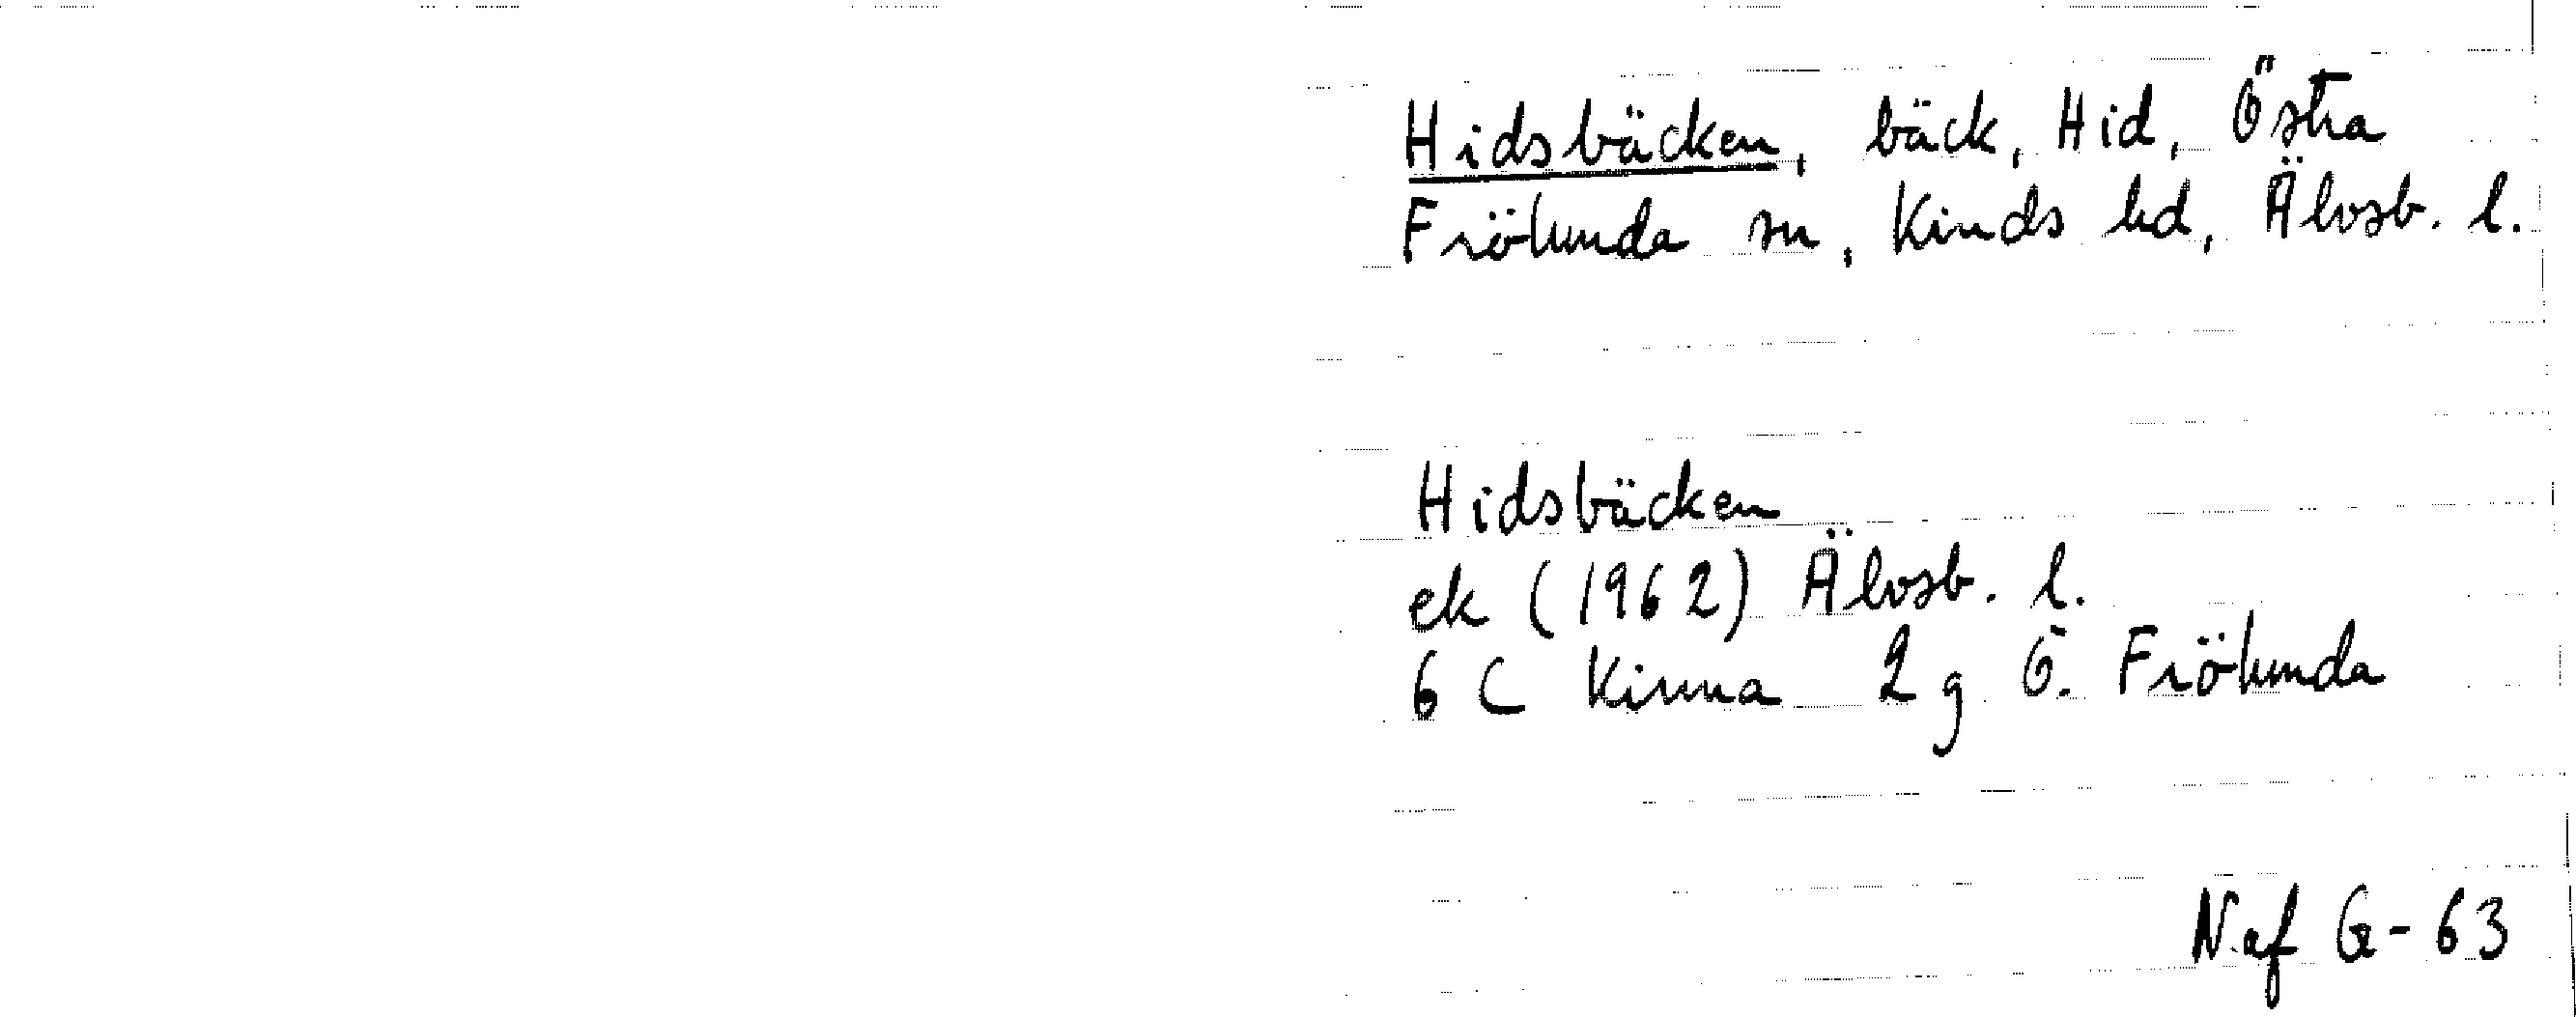 Hidsbäcken, bäck, Hid, Östra
Frölunda sn, Kinds hd, Älvsb. l.
Hidsbäcken
ek (1962) Älvsb. l.
6 C Kinna 2 g Ö. Frölunda
N. af G-63